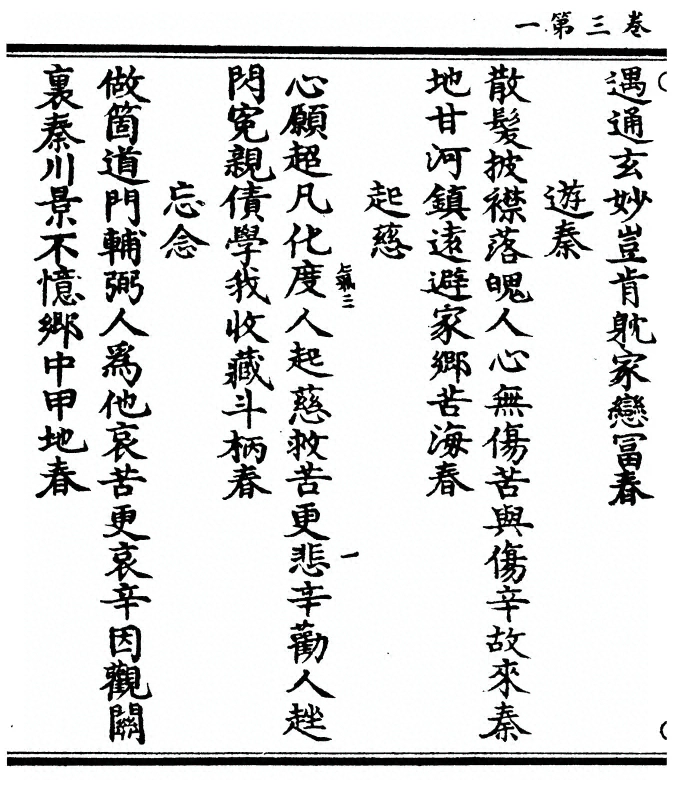 卷三第一
遇通玄妙豈肯躭家戀冨春
遊秦
散髮披襟落魄人心無傷苦與傷辛故來秦
地甘河鎮遠避家鄉苦海春
起慈
三
一
心願超凡化度人起慈救苦更悲辛勸人趓
閃寃親債學我收藏斗柄春
忘念
做箇道門輔弼人爲他哀苦更哀辛因觀關
裏秦川景不憶鄉中甲地春